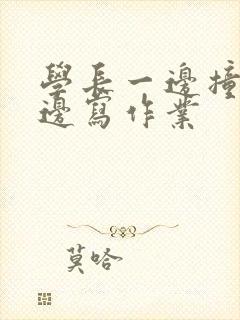 學長一邊撞
邊寫作業
莫哈